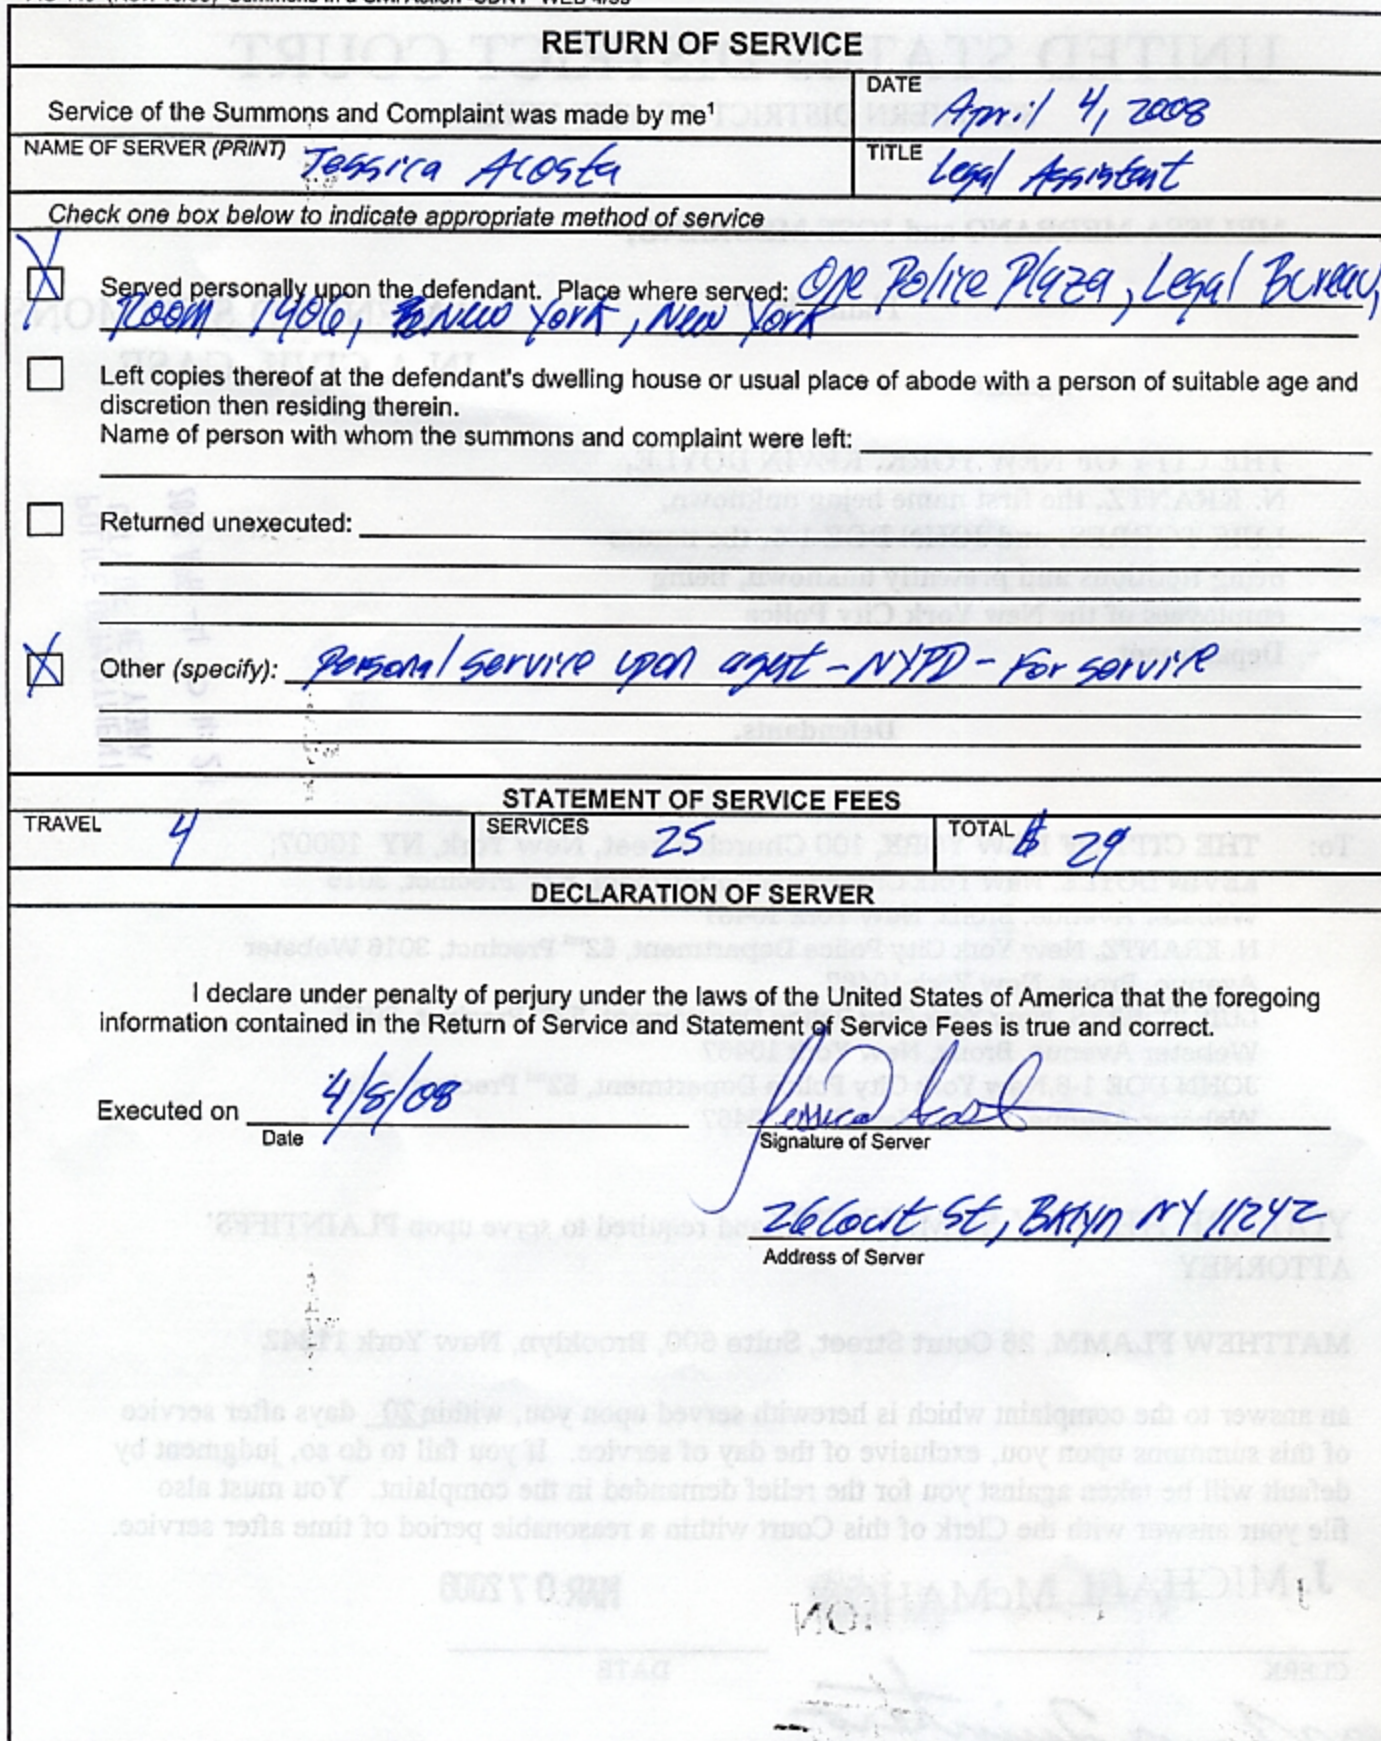 RETURN OF SERVICE
Service of the Summons and Complaint was made by me¹
DATE
April 4, 2008
NAME OF SERVER (PRINT)
Jessica Acosta
TITLE
Legal Assistant
Check one box below to indicate appropriate method of service
X Served personally upon the defendant. Place where served: One Police Plaza, Legal Bureau,
Room 1406, New York, New York
Left copies thereof at the defendant's dwelling house or usual place of abode with a person of suitable age and
discretion then residing therein.
Name of person with whom the summons and complaint were left:
Returned unexecuted:
X Other (specify): Personal service upon agent - NYPD - For service
STATEMENT OF SERVICE FEES
TRAVEL 4
SERVICES 25
TOTAL $ 29
DECLARATION OF SERVER
I declare under penalty of perjury under the laws of the United States of America that the foregoing
information contained in the Return of Service and Statement of Service Fees is true and correct.
Executed on 4/8/08
Date
Jessica Acosta
Signature of Server
26 Court St, Bklyn NY 11242
Address of Server